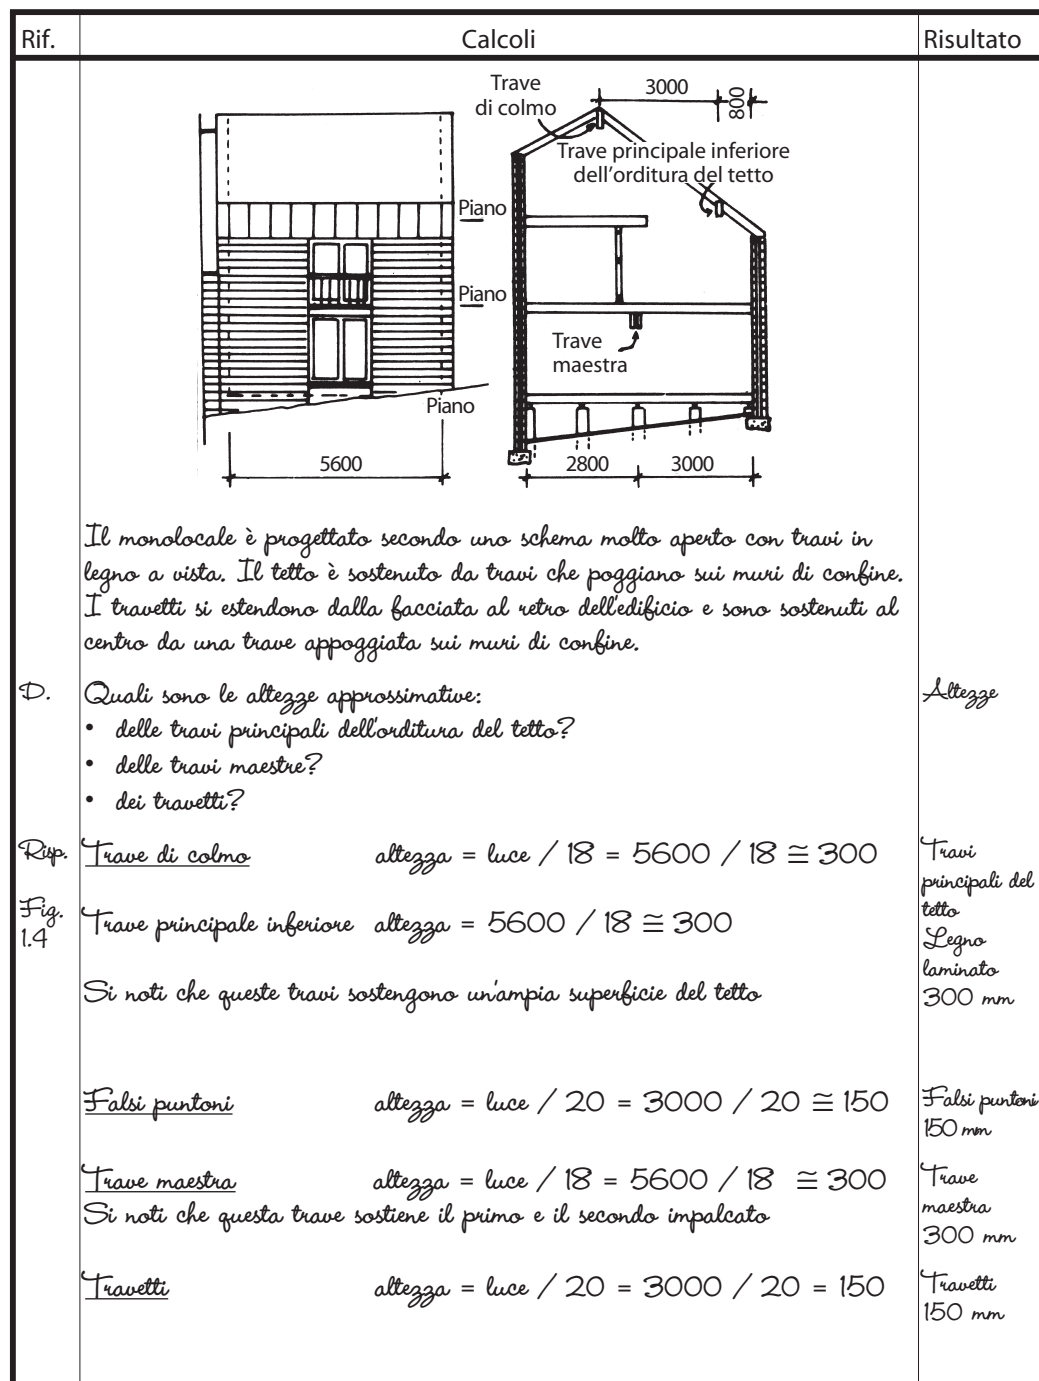 Rif.
Calcoli
Risultato
Trave
di colmo
3000
800
Trave principale inferiore
dell'orditura del tetto
Piano
Piano
Trave
maestra
Piano
5600
2800
3000
Il monolocale è progettato secondo uno schema molto aperto con travi in
legno a vista. Il tetto è sostenuto da travi che poggiano sui muri di confine.
I travetti si estendono dalla facciata al retro dell'edificio e sono sostenuti al
centro da una trave appoggiata sui muri di confine.
D.
Quali sono le altezze approssimative:
Altezze
• delle travi principali dell'orditura del tetto?
• delle travi maestre?
• dei travetti?
Risp.
Trave di colmo altezza = luce / 18 = 5600 / 18 ≅ 300
Travi
principali del
tetto
Legno
laminato
300 mm
Fig.
1.4
Trave principale inferiore altezza = 5600 / 18 ≅ 300
Si noti che queste travi sostengono un'ampia superficie del tetto
Falsi puntoni altezza = luce / 20 = 3000 / 20 ≅ 150
Falsi puntoni
150 mm
Trave maestra altezza = luce / 18 = 5600 / 18 ≅ 300
Si noti che questa trave sostiene il primo e il secondo impalcato
Trave
maestra
300 mm
Travetti altezza = luce / 20 = 3000 / 20 = 150
Travetti
150 mm